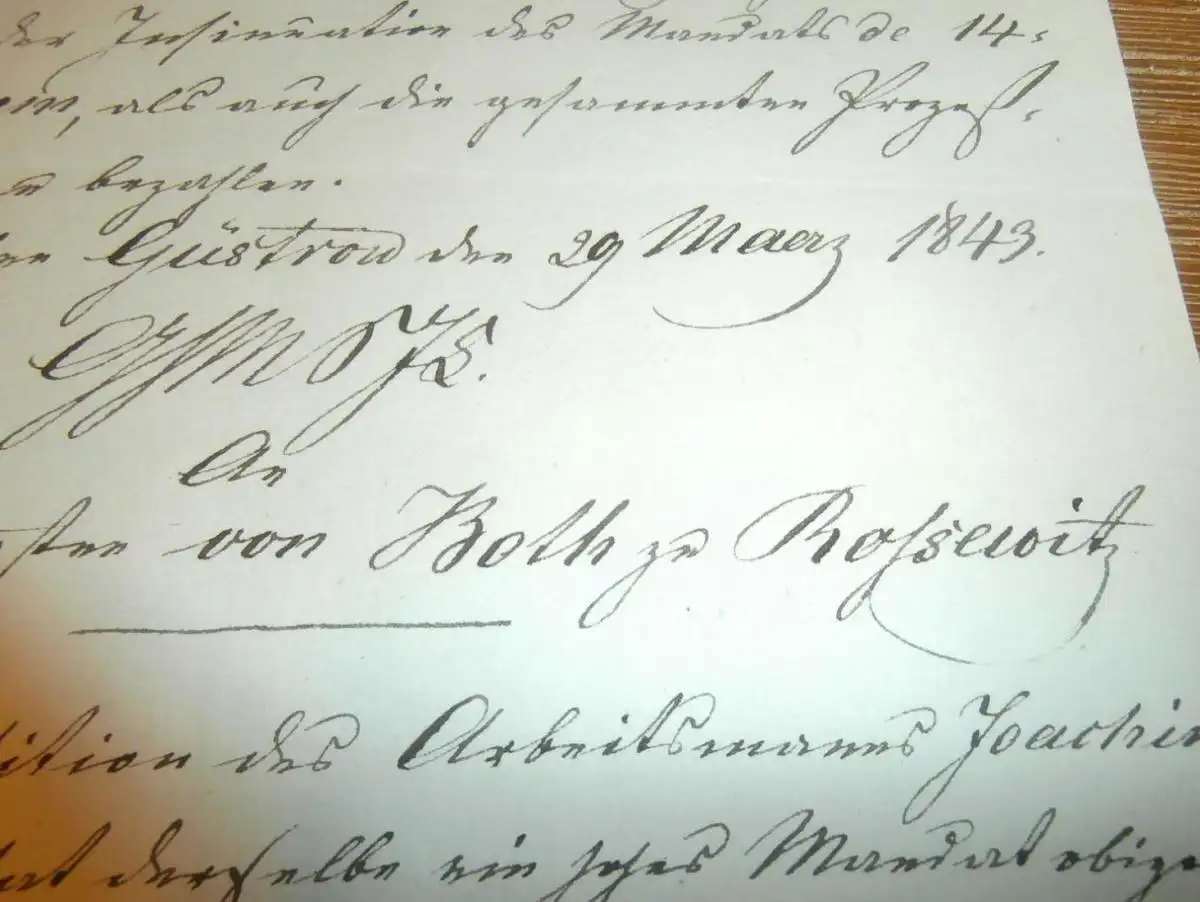 der Insinuation des Mandats de 14
als auch die gesammten Prozeß
bezahlen.
Güstrow den 29 Maerz 1843.
An
von Both zu Rossewitz
des Arbeitsmanns Joachim
derselbe ein hohes Mandat